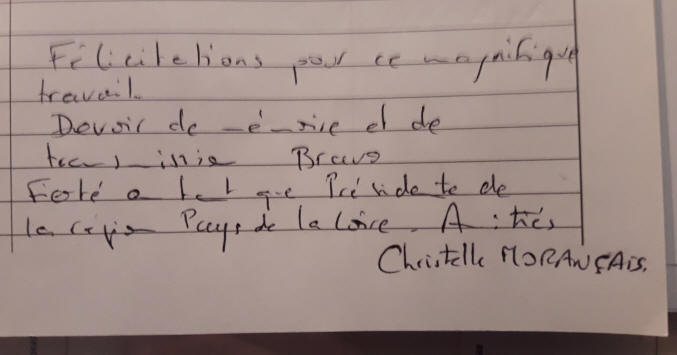 Félicitations pour ce magnifique
travail.
Devoir de mémoire et de
transmission Bravo
Fierté en tant que Présidente de
la région Pays de la Loire. Amitiés
Christelle MORANÇAIS.